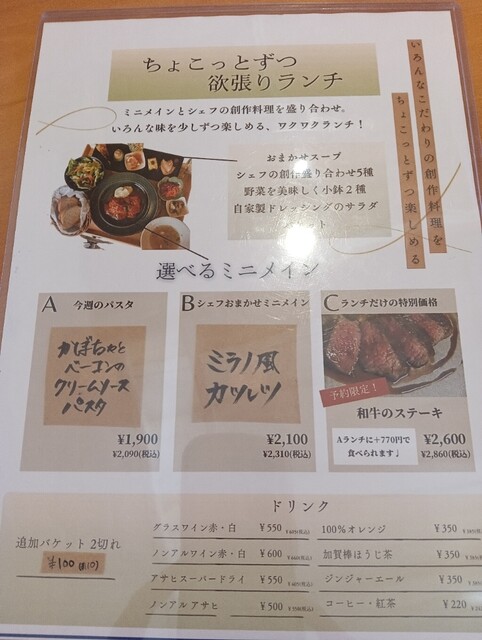 ちょこっとずつ
欲張りランチ
ミニメインとシェフの創作料理を盛り合わせ。
いろんな味を少しずつ楽しめる、ワクワクランチ！
いろんなこだわりの創作料理を
ちょこっとずつ楽しめる
おまかせスープ
シェフの創作盛り合わせ5種
野菜を美味しく小鉢２種
自家製ドレッシングのサラダ
選べるミニメイン
A 今週のパスタ
かぼちゃと
ベーコンの
クリームソース
パスタ
¥1,900
¥2,090(税込)
B シェフおまかせミニメイン
ミラノ風
カツレツ
¥2,100
¥2,310(税込)
C ランチだけの特別価格
予約限定！
和牛のステーキ
Aランチに+770円で
食べられます♩
¥2,600
¥2,860(税込)
追加バケット 2切れ
¥100
ドリンク
グラスワイン赤・白 ¥550
ノンアルワイン赤・白 ¥600
アサヒスーパードライ ¥550
ノンアルアサヒ ¥500
100%オレンジ ¥350
加賀棒ほうじ茶 ¥350
ジンジャーエール ¥350
コーヒー・紅茶 ¥220